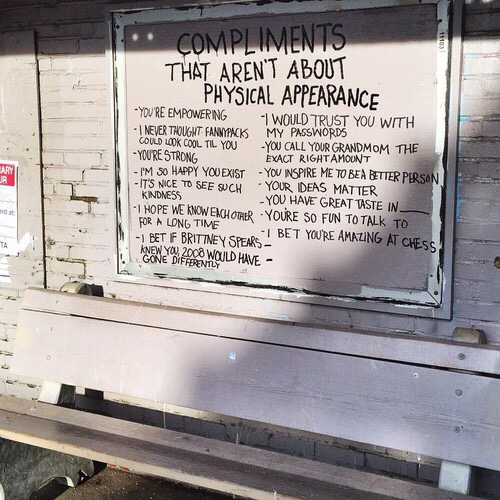 COMPLIMENTS
THAT AREN'T ABOUT
PHYSICAL APPEARANCE
-YOU'RE EMPOWERING
-I NEVER THOUGHT FANNYPACKS
COULD LOOK COOL TIL YOU
-YOU'RE STRONG
-I'M SO HAPPY YOU EXIST
-IT'S NICE TO SEE SUCH
KINDNESS
-I HOPE WE KNOW EACH OTHER
FOR A LONG TIME
-I BET IF BRITTNEY SPEARS
KNEW YOU 2008 WOULD HAVE
GONE DIFFERENTLY
-I WOULD TRUST YOU WITH
MY PASSWORDS
-YOU CALL YOUR GRANDMOM THE
EXACT RIGHT AMOUNT
-YOU INSPIRE ME TO BE A BETTER PERSON
-YOUR IDEAS MATTER
-YOU HAVE GREAT TASTE IN ____
-YOU'RE SO FUN TO TALK TO
- I BET YOU'RE AMAZING AT CHESS
-
11103